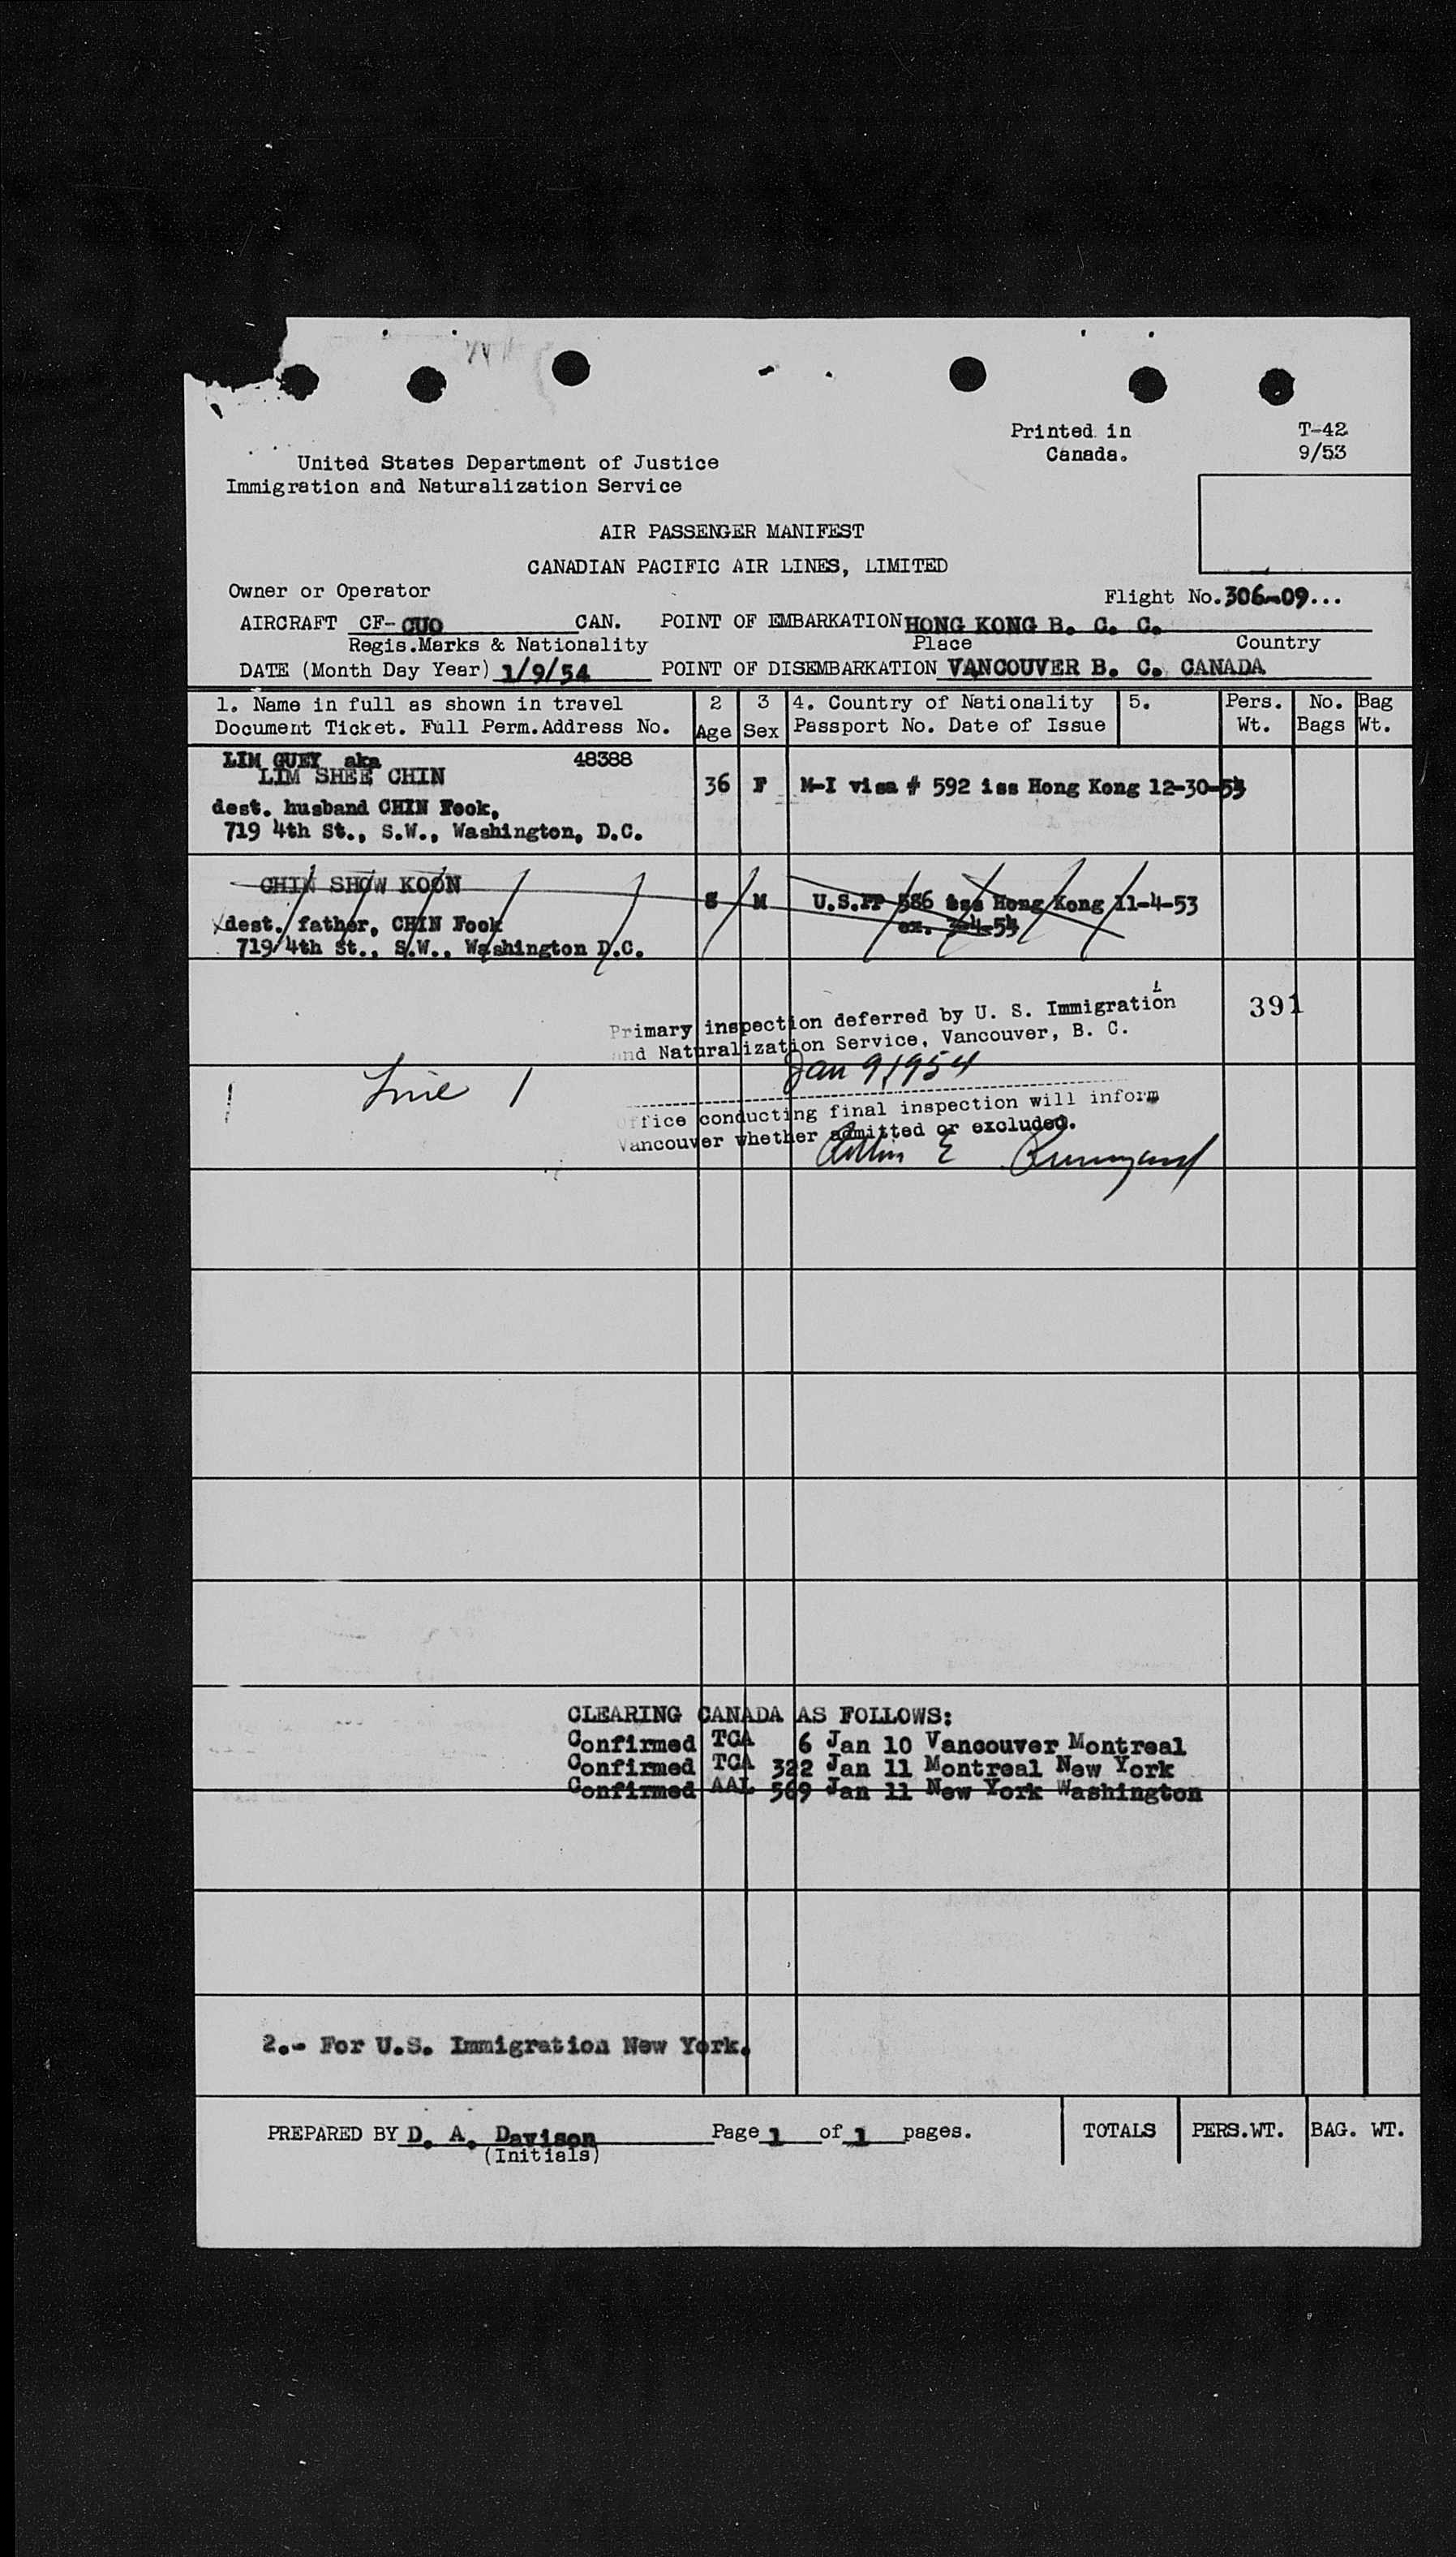 Printed in T-42
Canada. 9/53
United States Department of Justice
Immigration and Naturalization Service
AIR PASSENGER MANIFEST
CANADIAN PACIFIC AIR LINES, LIMITED
Owner or Operator Flight No.306-09...
AIRCRAFT CF-CUO CAN. POINT OF EMBARKATION HONG KONG B. C. C.
Regis.Marks & Nationality Place Country
DATE (Month Day Year) 1/9/54 POINT OF DISEMBARKATION VANCOUVER B. C. CANADA
1. Name in full as shown in travel 2 3 4. Country of Nationality 5. Pers. No. Bag
Document Ticket. Full Perm.Address No. Age Sex Passport No. Date of Issue Wt. Bags Wt.
LIM GUEY aka 48388
LIM SHEE CHIN 36 F M-I visa # 592 iss Hong Kong 12-30-53
dest. husband CHIN Fook,
719 4th St., S.W., Washington, D.C.
CHIN SHOW KOON
8 M U.S.PP 586 iss Hong Kong 11-4-53
dest. father, CHIN Fook ex. 3-4-54
719 4th St., S.W., Washington D.C.
Primary inspection deferred by U. S. Immigration 391
and Naturalization Service, Vancouver, B. C.
Jan 9, 1954
Line 1
Office conducting final inspection will inform
Vancouver whether admitted or excluded.
E
CLEARING CANADA AS FOLLOWS:
Confirmed TCA 6 Jan 10 Vancouver Montreal
Confirmed TCA 322 Jan 11 Montreal New York
Confirmed AAL 569 Jan 11 New York Washington
2.- For U.S. Immigration New York.
PREPARED BY D. A. Davison Page 1 of 1 pages. TOTALS PERS.WT. BAG. WT.
(Initials)